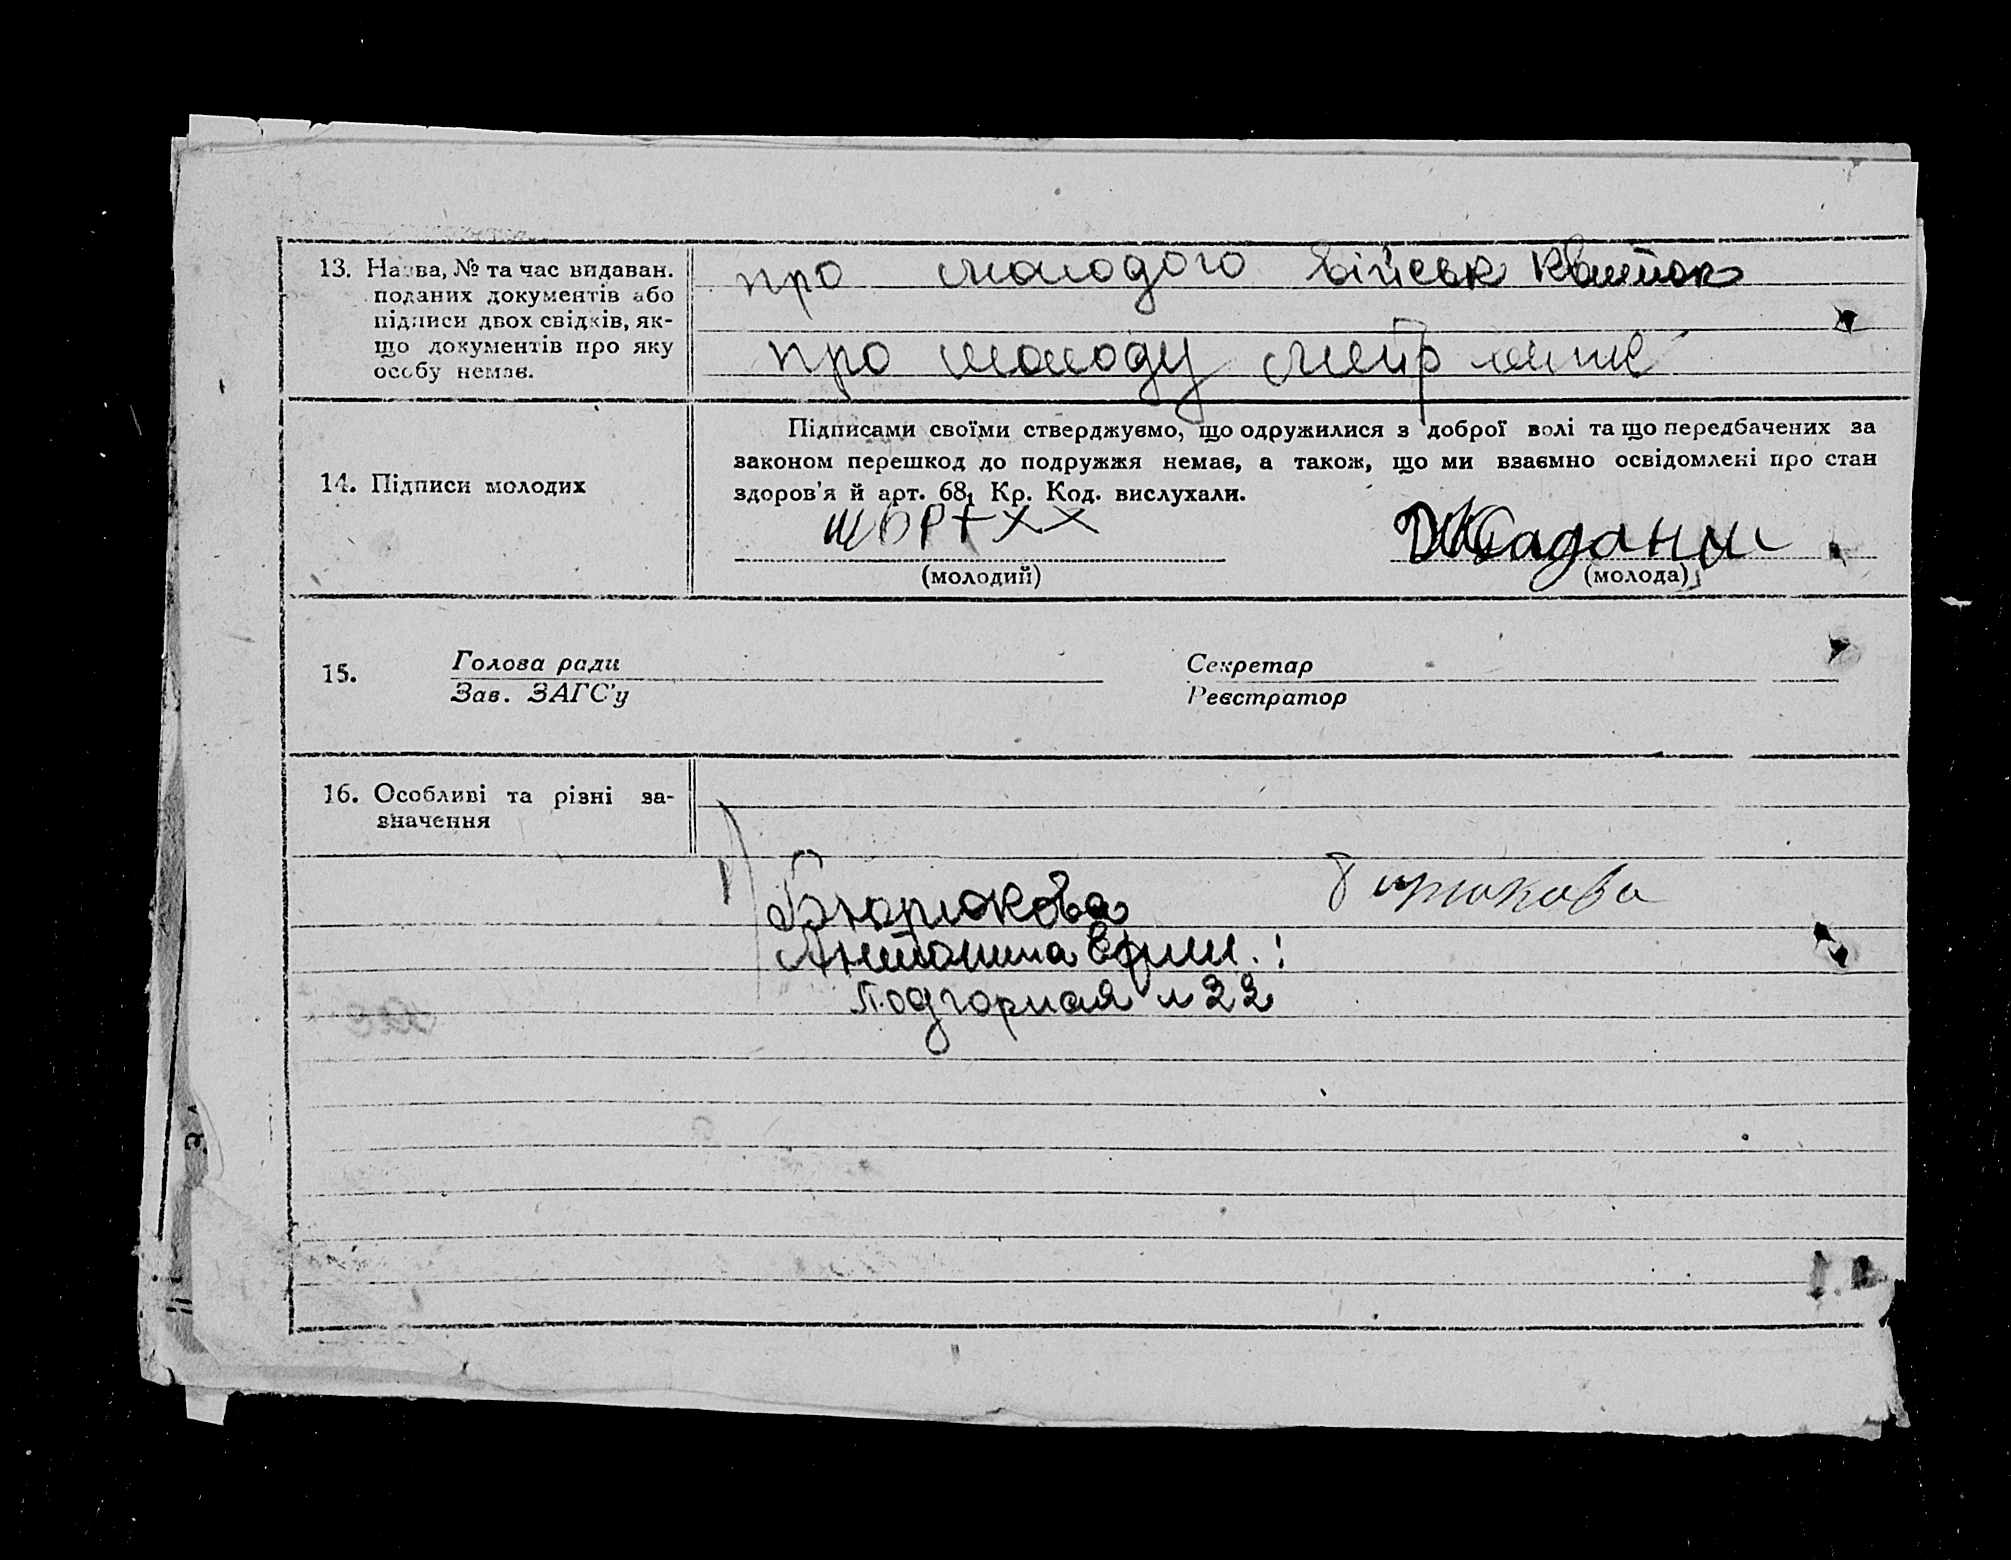 13. Назва, № та час видаван.
поданих документів або
підписи двох свідків, як-
що документів про яку
особу немає.
про молодого військ квиток
про молоду метр
14. Підписи молодих
Підписами своїми стверджуємо, що одружилися з доброї волі та що передбачених за
законом перешкод до подружжя немає, а також, що ми взаємно освідомлені про стан
здоров'я й арт. 68₁ Кр. Код. вислухали.
(молодий)
Жадан
(молода)
15.
Голова ради
Зав. ЗАГС'у
Секретар
Реєстратор
16. Особливі та різні за-
значення
1)
Бюрюкова
Бирюкова
Антонина Ефим. :
Подгорная № 22